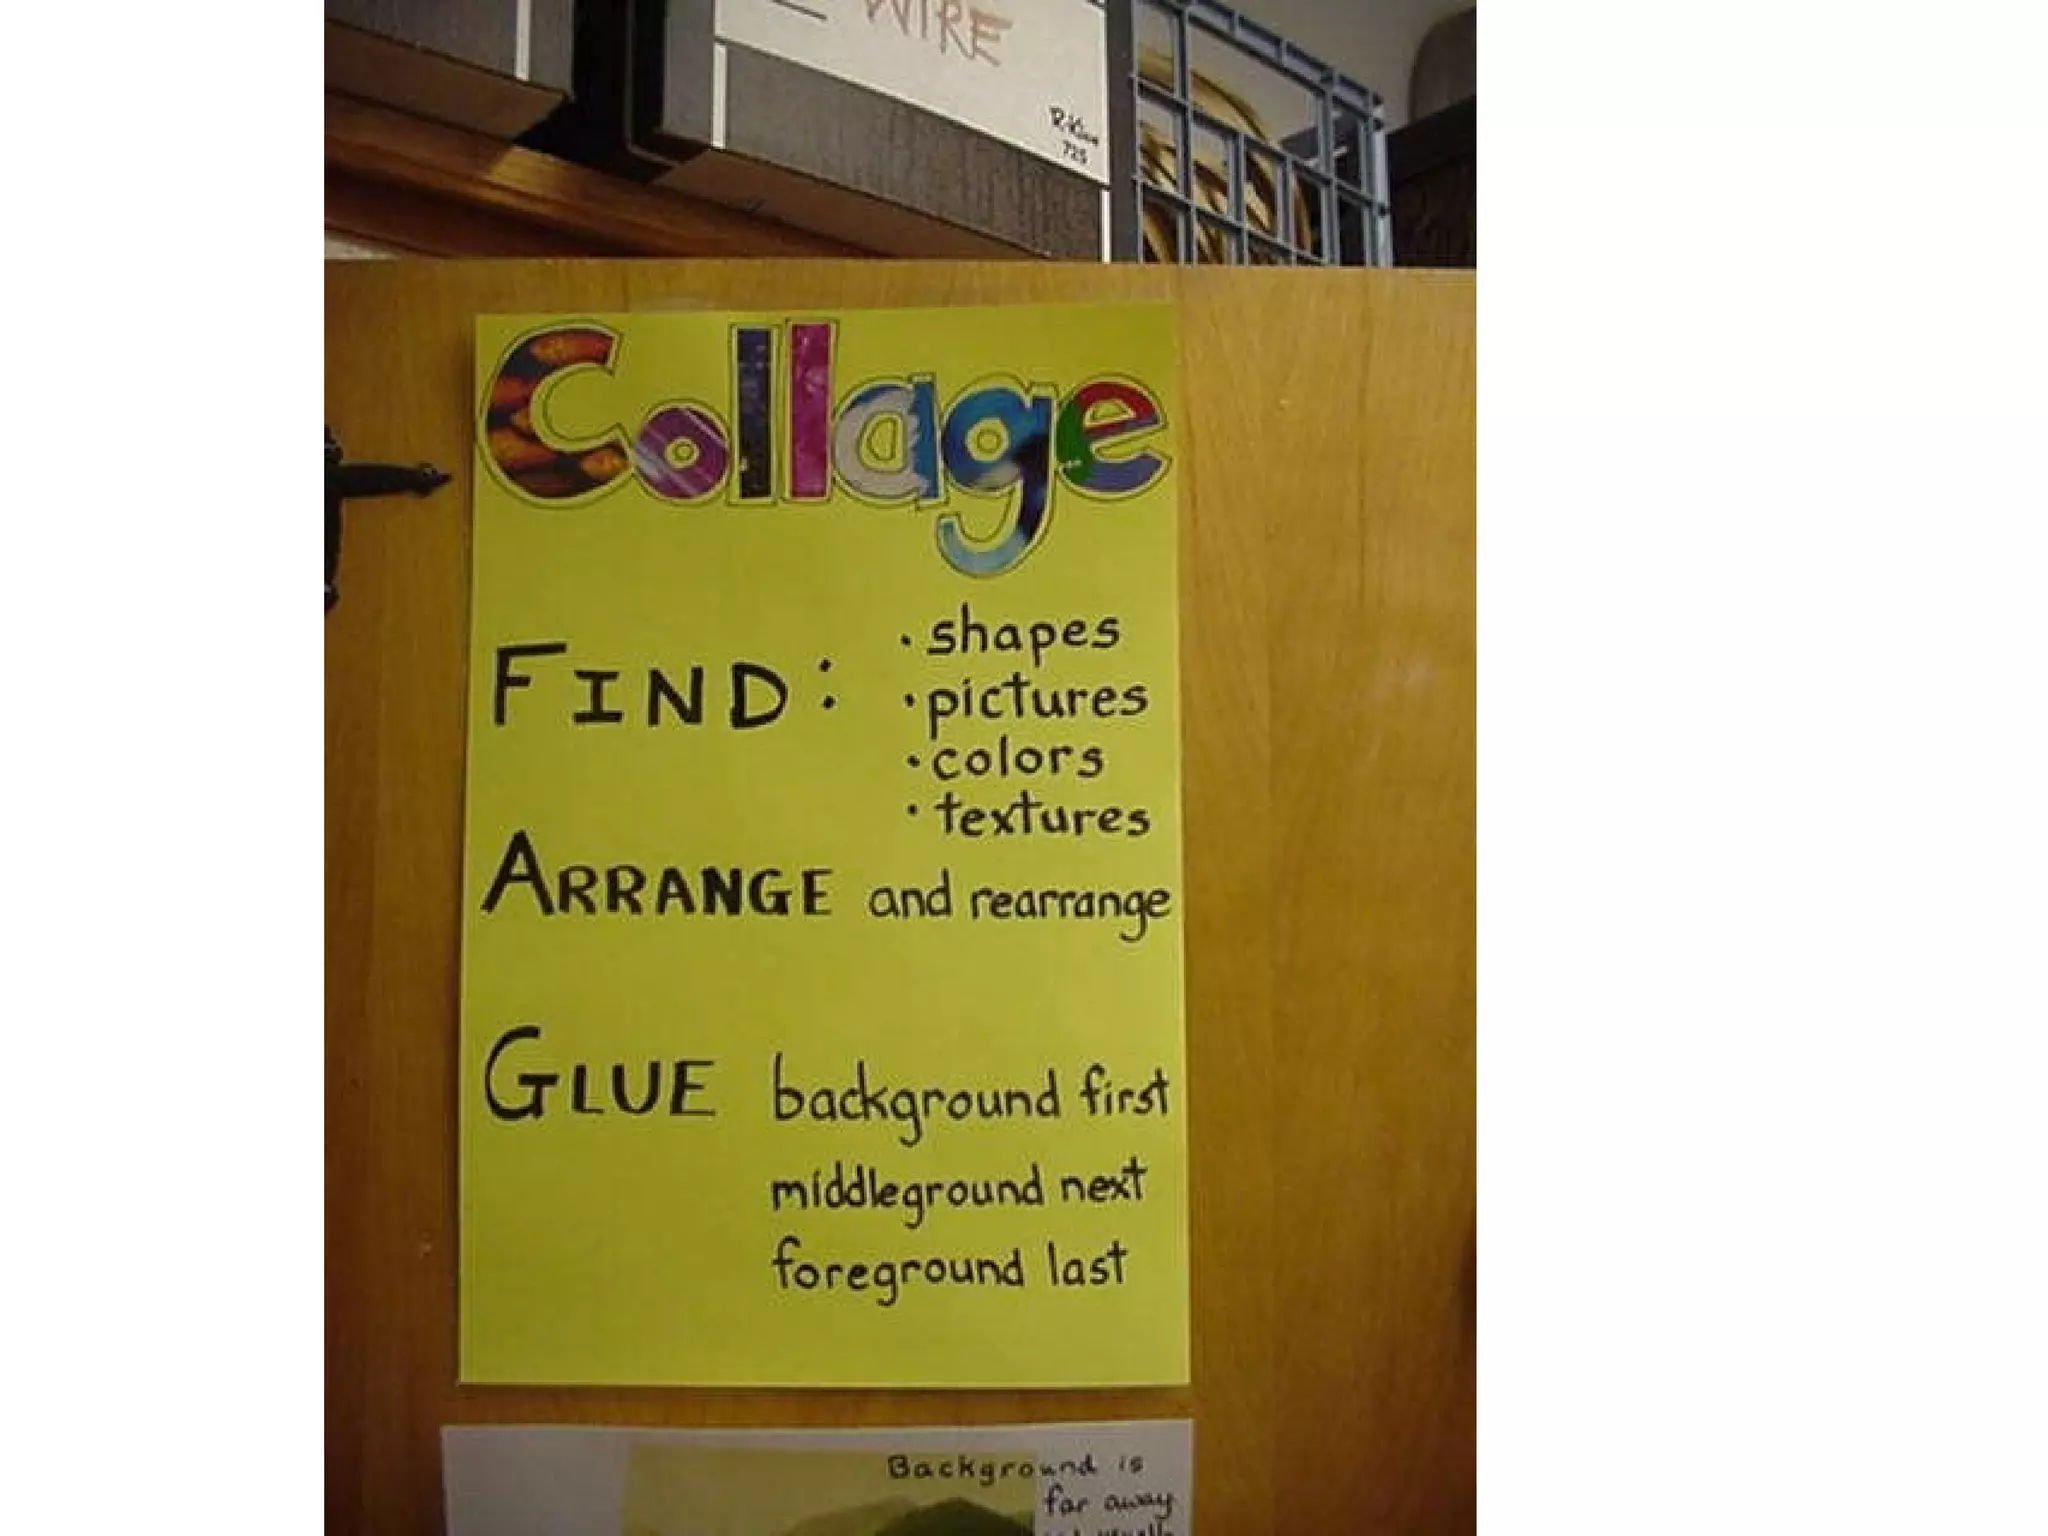 WIRE
725
Collage
FIND:
· shapes
· pictures
· colors
· textures
ARRANGE and rearrange
GLUE background first
middleground next
foreground last
Background is
far away